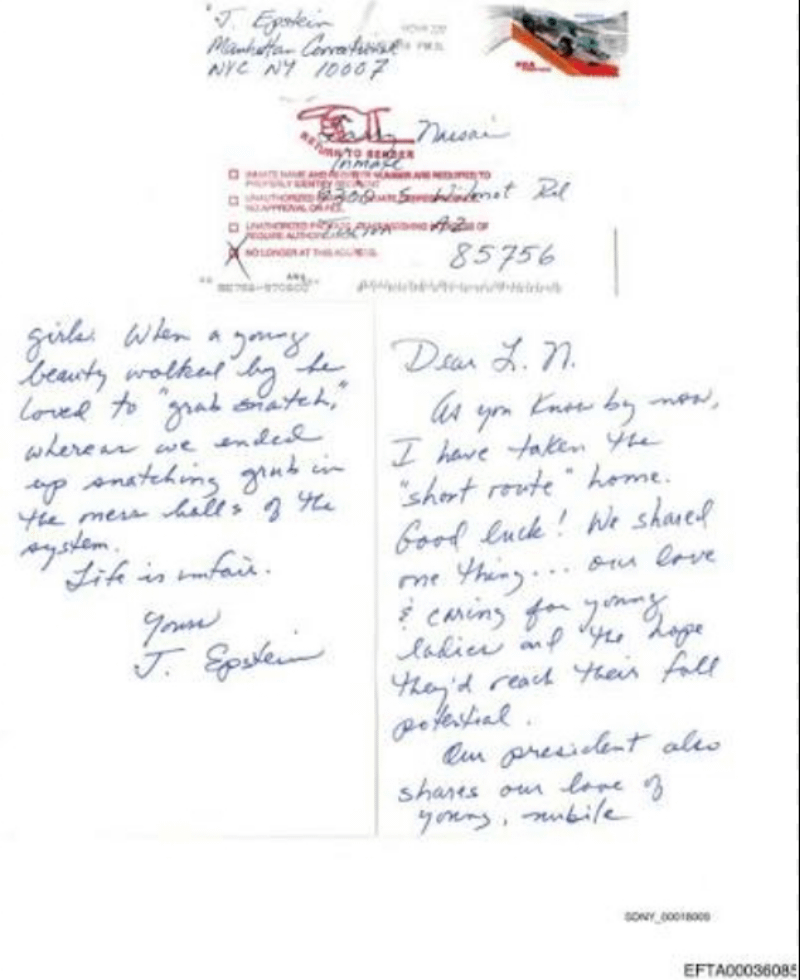 J. Epstein
Manhattan Correctional
NYC NY 10007
USA
Larry Nassar
RETURN TO SENDER
Inmate
INMATE NAME AND REGISTER NUMBER ARE REQUIRED TO
PROPERLY IDENTIFY RECIPIENT
9300 S. Wilmot Rd
UNAUTHORIZED
NO APPROVAL ON FILE.
Tucson AZ
UNAUTHORIZED OF
REQUIRE
85756
NO LONGER AT THIS ADDRESS.
Dear L. N.
As you know by now,
I have taken the
"short route" home.
Good luck! We shared
one thing... our love
& caring for young
ladies and the hope
they'd reach their full
potential.
Our president also
shares our love of
young, nubile
girls. When a young
beauty walked by he
loved to "grab snatch,"
whereas we ended
up snatching grub in
the mess halls of the
system.
Life is unfair.
Yours
J. Epstein
EFTA00036085